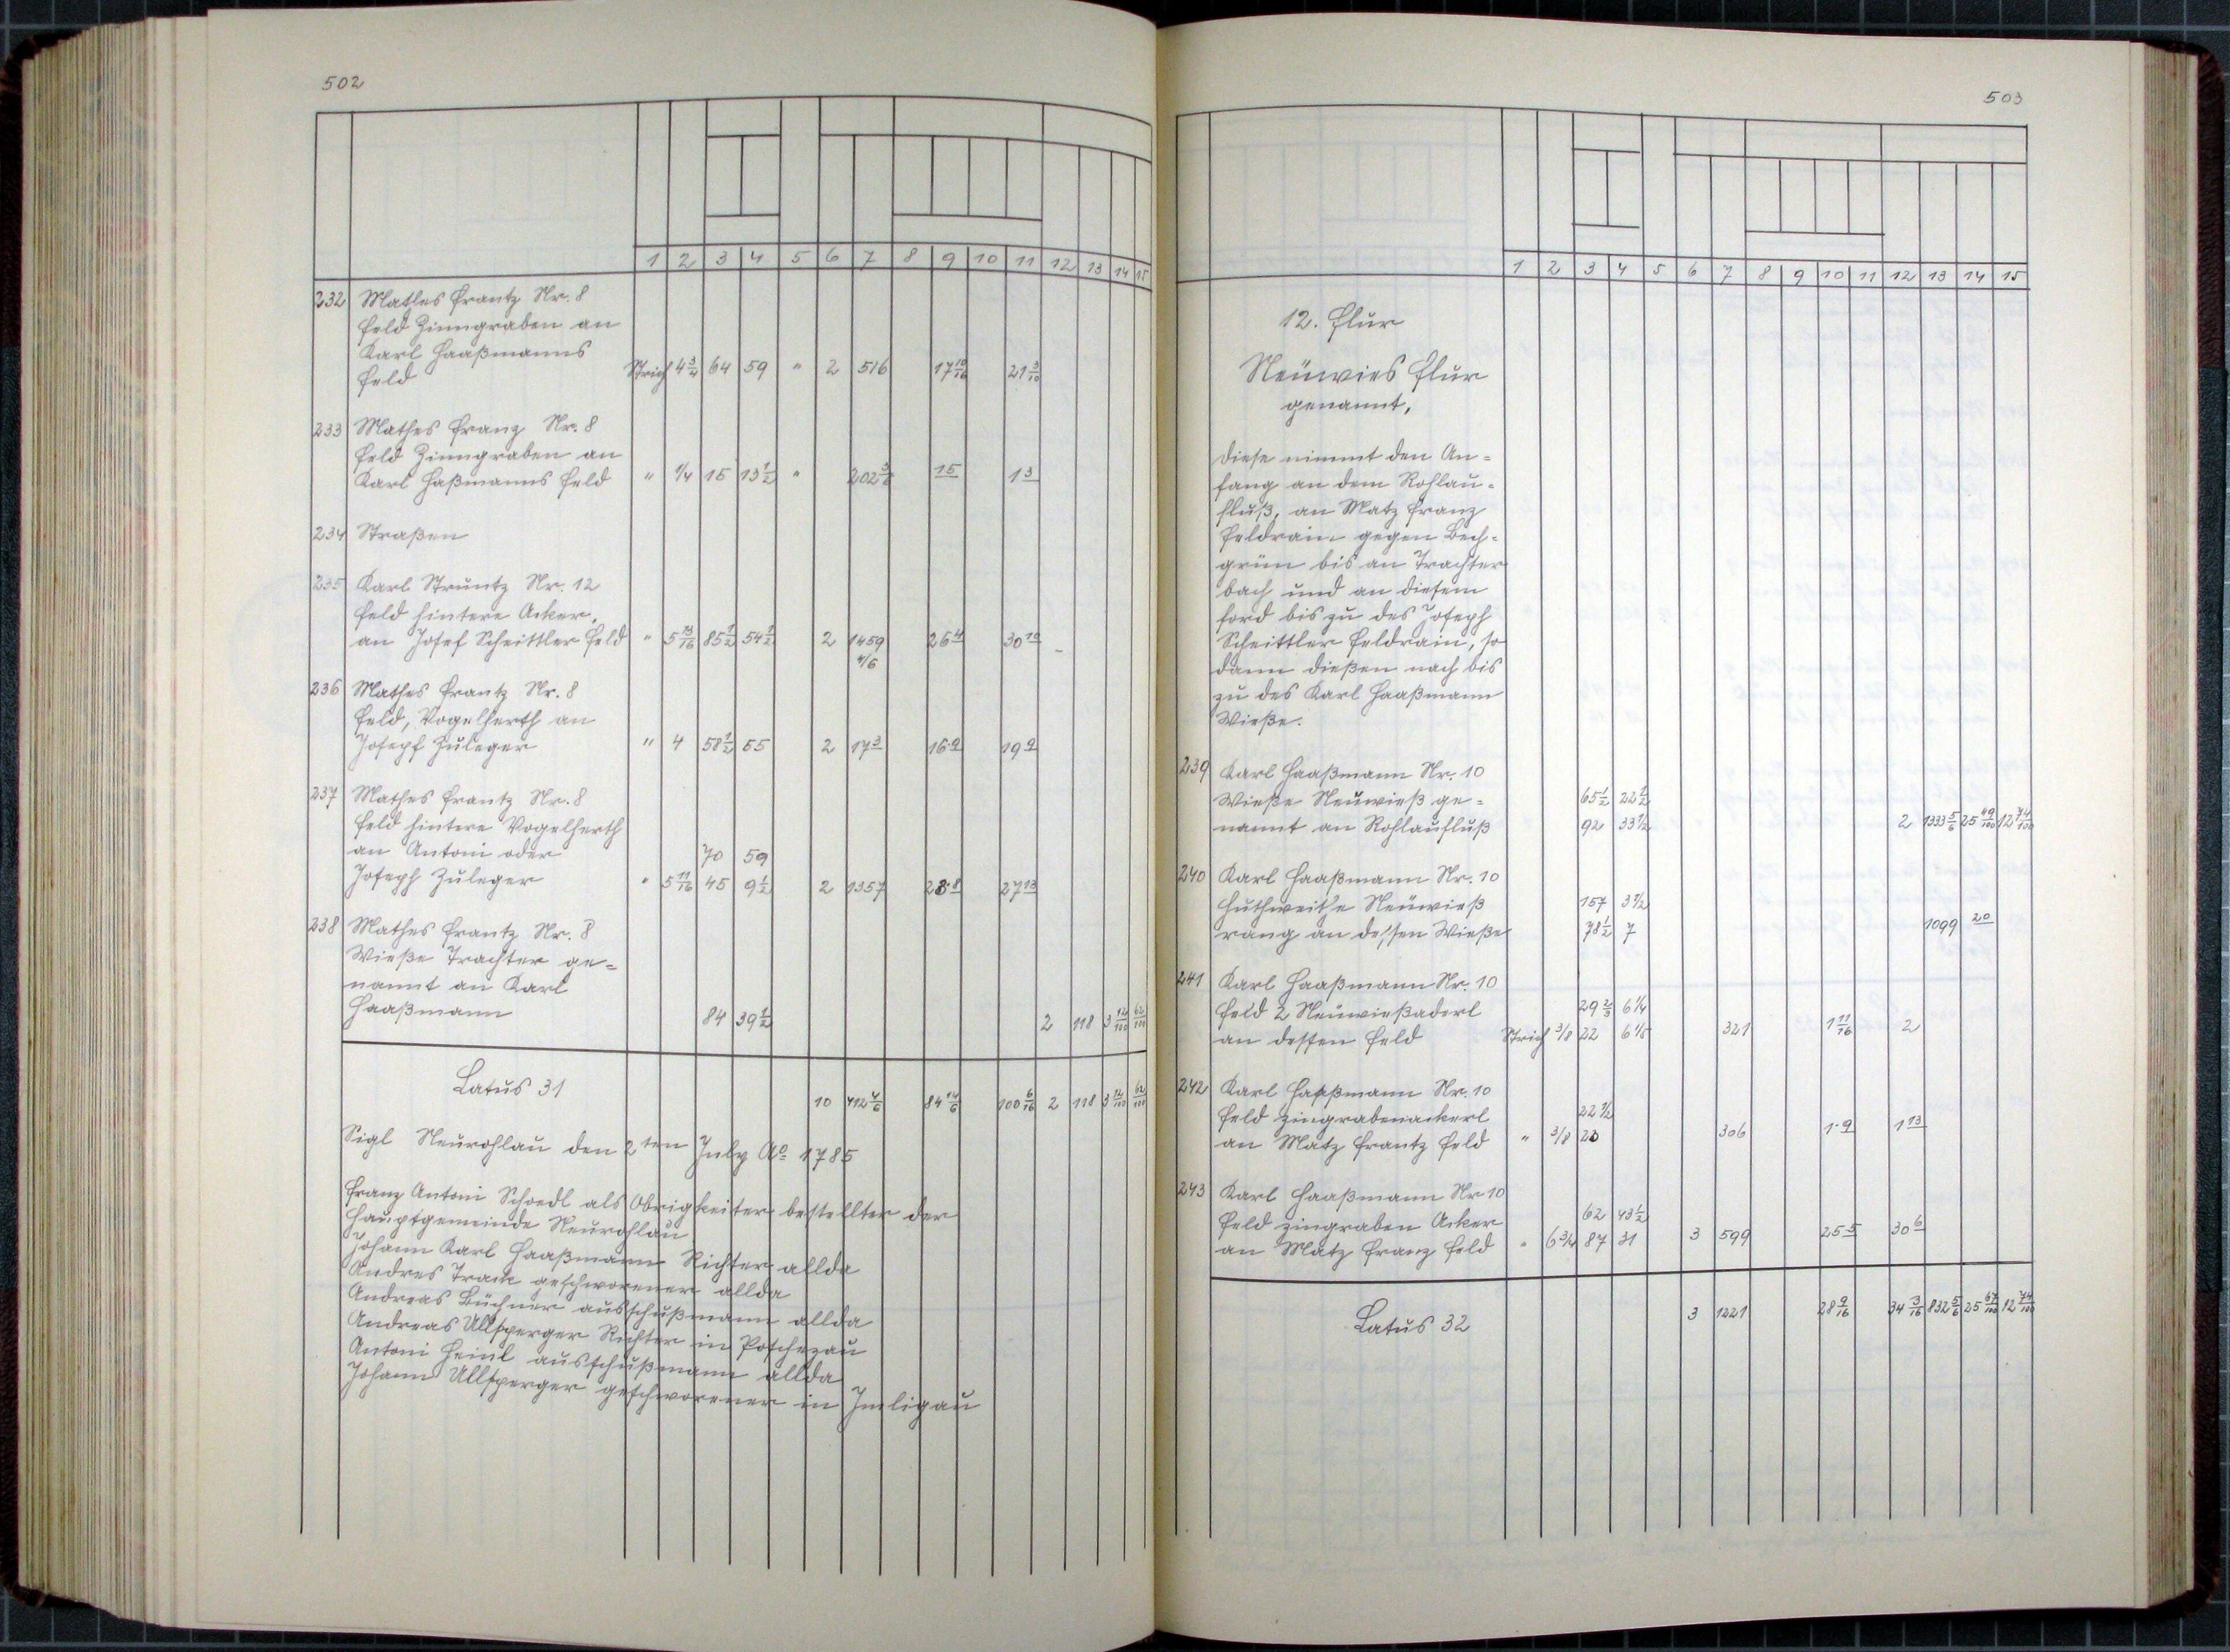 502
1 2 3 4 5 6 7 8 9 10 11 12 13 14 15
232 Mathes Frantz Nr. 8
Feld Zinngraben an
Karl Haaßmanns
Feld Strich 4 3/4 64 59 " 2 516 17 10/16 21 3/10
233 Mathes Franz Nr. 8
Feld Zinngraben an
Karl Haßmanns Feld " 1/4 15 13 1/2 " 202 15 13
234 Straßen
235 Karl Struntz Nr. 12
Feld hintere Acker,
an Josef Scheittler Feld " 5 13/16 85 1/2 54 1/2 2 1459 26 4 30
4/6
236 Mathes Frantz Nr. 8
Feld, Vogelherth an
Josepf Zuleger " 4 58 1/2 55 2 17 3 16 9 19 9
237 Mathes Frantz Nr. 8
Feld hintere Vogelherth
an Antoni oder 70 59
Joseph Zuleger " 5 11/16 45 9 1/2 2 1357 23 8 27 13
238 Mathes Frantz Nr. 8
Wieße Trachter ge=
nannt an Karl
Haaßmann 84 39 1/2 2 118 3 12/100 62/100
Latus 31 10 412 4/6 84 14/6 100 6/16 2 118 3 12/100 62/100
Sigl Neurohlau den 2ten July Ao 1785
Franz Antoni Schoedl als Obrigkeiter bestellter der
Hauptgemeinde Neurohlau
Johann Karl Haaßmann Richter allda
Andres Track geschworener allda
Andreas Büchner ausschußmann allda
Andreas Ullsperger Richter in Poschezau
Antoni Heinl ausschußmann allda
Johann Ullsperger geschworener in Imligau
503
1 2 3 4 5 6 7 8 9 10 11 12 13 14 15
12. Flur
Neuwies Flur
genannt,
Diese nimmt den An=
fang an dem Rohlau=
fluß, an Matz Franz
Feldrain gegen Bech=
grün bis an Trachter
bach und an diesem
ford bis zu des Joseph
Scheittler Feldrain, so
dann dießen nach bis
zu des Karl Haaßmann
Wieße.
239 Karl Haaßmann Nr. 10
Wieße Neuwieß ge= 65 1/2 22 1/2
nannt an Rohlaufluß 92 33 1/2 2 1333 5/6 25 49/100 12 74/100
240 Karl Haaßmann Nr. 10
Huthweithe Neuwieß 157 3 1/2
rang an dessen Wieße 78 1/2 7 1099 20
241 Karl Haaßmann Nr. 10
Feld 2 Neuwießaderl 29 2/3 6 1/4
an dessen Feld Strich 3/8 22 6 1/5 321 1 11/16 2
242 Karl Haaßmann Nr. 10
Feld zingrabenackerl 22 1/2
an Matz Frantz Feld " 3/8 20 306 1 9 1 13
243 Karl Haaßmann Nr 10
Feld zingraben Acker 62 43 1/2
an Matz Franz Feld " 6 3/4 87 31 3 599 25 5 30 6
Latus 32 3 1221 28 9/16 34 3/16 832 5/6 25 67/100 12 74/100